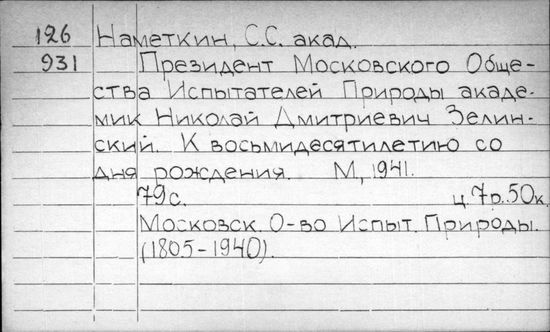 126 Наметкин, С.С. акад.
931 Президент Московского Обще-
ства Испытателей Природы акаде-
мик Николай Дмитриевич Зелин-
ский. К восьмидесятилетию со
дня рождения. М., 1941.
79с. ц. 7р. 50к.
Московск. О-во Испыт. Природы.
(1805-1940).